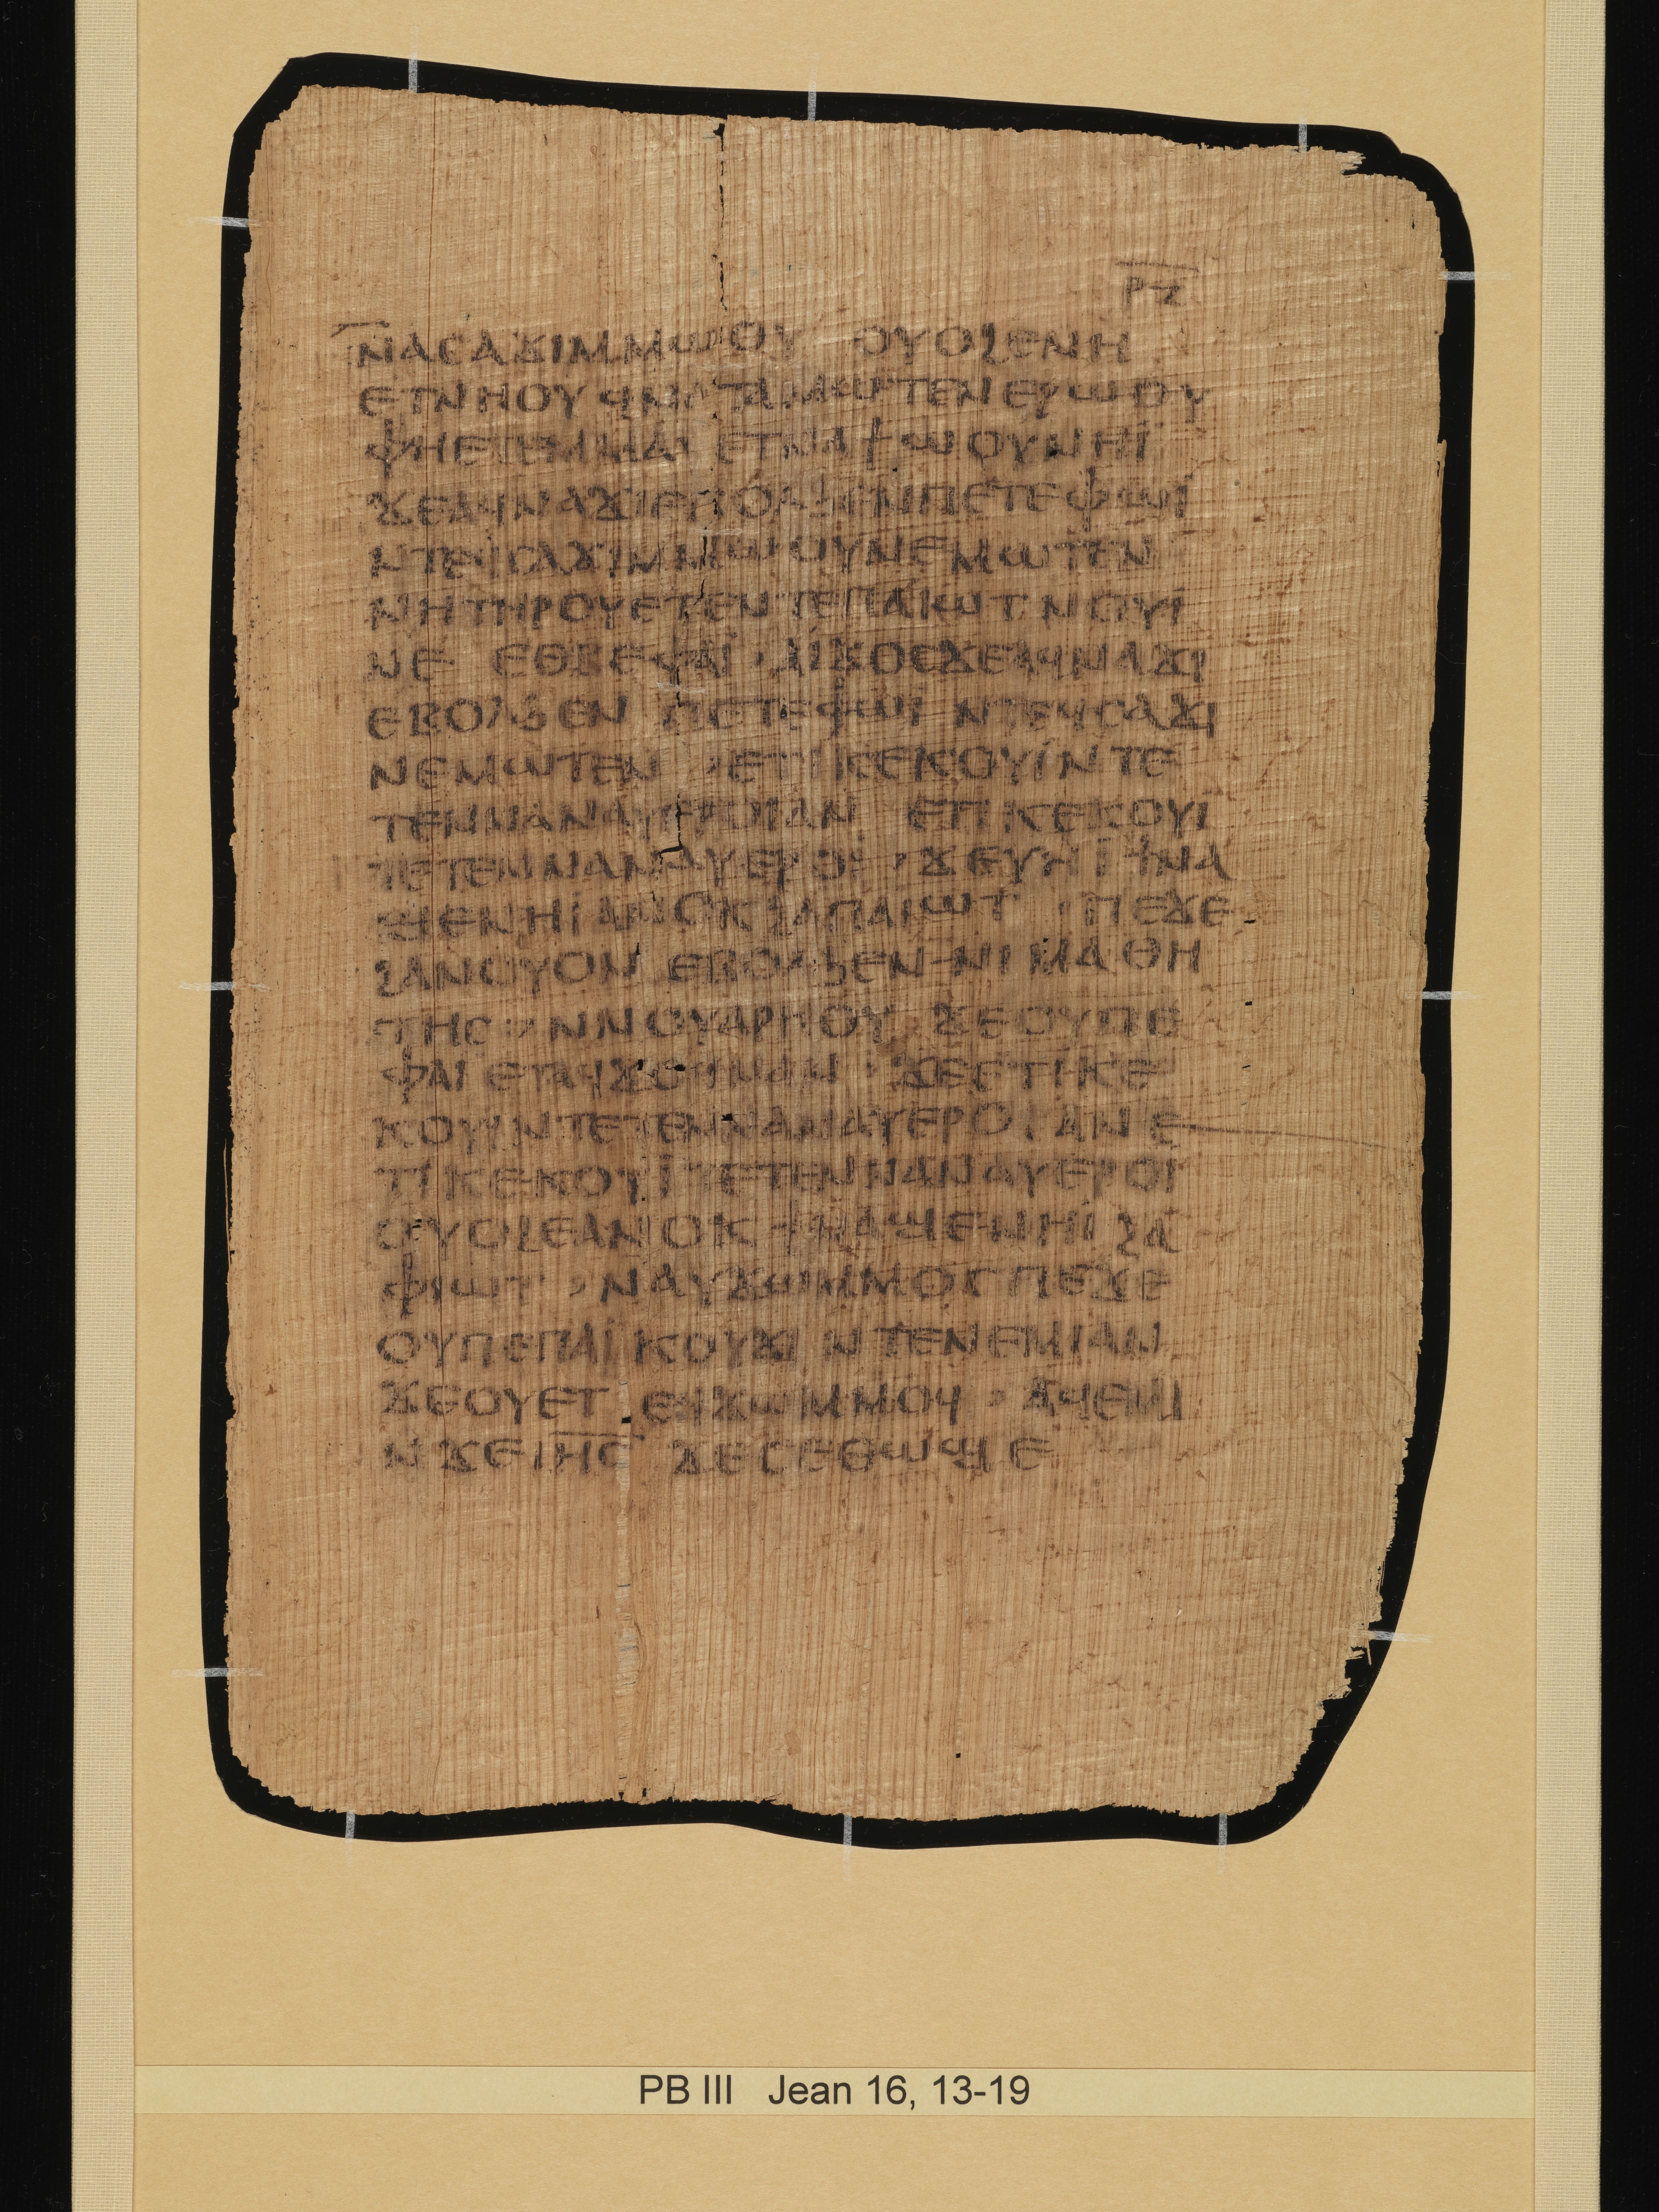 ⲣⲍ
ⲛⲁⲥⲁϫⲓⲙⲙⲱⲟⲩ ⲟⲩⲟϩⲉⲛⲏ
ⲉⲧⲛⲏⲟⲩ ϥⲛⲁⲧⲁⲙⲱⲧⲉⲛ ⲉⲣⲱⲟⲩ
ⲫⲏⲉⲧⲉⲙⲙⲁⲩ ⲉⲧⲛⲁϯⲱⲟⲩⲛⲏⲓ
ϫⲉⲁϥⲛⲁϫⲓⲉⲃⲟⲗϧⲉⲛⲡⲉⲧⲉⲫⲱⲓ
ⲛⲧⲉϥⲥⲁϫⲓⲙⲙⲱⲟⲩⲛⲉⲙⲱⲧⲉⲛ
ⲛⲏⲧⲏⲣⲟⲩⲉⲧⲉⲛⲧⲉⲡⲁⲓⲱⲧ ⲛⲟⲩⲓ
ⲛⲉ ⲉⲑⲃⲉⲫⲁⲓ ⲁⲓϫⲟⲥϫⲉⲁϥⲛⲁϫⲓ
ⲉⲃⲟⲗϧⲉⲛ ⲡⲉⲧⲉⲫⲱⲓ ⲛⲧⲉϥⲥⲁϫⲓ
ⲛⲉⲙⲱⲧⲉⲛ ⳇⲉⲧⲓⲕⲉⲕⲟⲩⲓ̈ⲛⲧⲉ
ⲧⲉⲛⲛⲁⲛⲁⲩⲉⲣⲟⲓⲁⲛ ⲉⲧⲓⲕⲉⲕⲟⲩⲓ
ⲧⲉⲧⲉⲛⲛⲁⲛⲁⲩⲉⲣⲟⲓ ⳇ ϫⲉⲩⲏⲓ ϯⲛⲁ
ϣⲉⲛⲏⲓ ⲁⲛⲟⲕϩⲁⲡⲁⲓⲱⲧ ⳇ ⲡⲉϫⲉ
ϩⲁⲛⲟⲩⲟⲛ ⲉⲃⲟⲗϧⲉⲛⲛⲓⲙⲁⲑⲏ
ⲧⲏⲥ ⳇ ⲛⲛⲟⲩⲁⲣⲏⲟⲩ ϫⲉⲟⲩⲡⲉ
ⲫⲁⲓ ⲉⲧⲁϥϫⲟϥⲛⲁⲛ ⳇ ϫⲉⲉⲧⲓⲕⲉ
ⲕⲟⲩⲓ̈ⲛⲧⲉⲧⲉⲛⲛⲁⲛⲁⲩⲉⲣⲟⲓ ⲁⲛ ⲉ
ⲧⲓⲕⲉⲕⲟⲩⲓ̈ ⲧⲉⲧⲉⲛⲛⲁⲛⲁⲩⲉⲣⲟⲓ
ⲟⲩⲟϩⲉⲁⲛⲟⲕ ϯⲛⲁϣⲉⲛⲏⲓ ϩⲁ
ⲫⲓⲱⲧ ⳇ ⲛⲁⲩϫⲱⲙⲙⲟⲥ ⲡⲉϫⲉ
ⲟⲩⲡⲉⲡⲁⲓ ⲕⲟⲩϫⲓ ⲛⲧⲉⲛⲉⲙⲓⲁⲛ
ϫⲉⲟⲩⲉⲧ ⲉϥϫⲱⲙⲙⲟϥ ⳇ ⲁϥⲉⲙⲓ
ⲛϫⲉⲓⲏⲥ ϫⲉⲥⲉⲑⲱϣ ⲉ
PB III Jean 16, 13-19